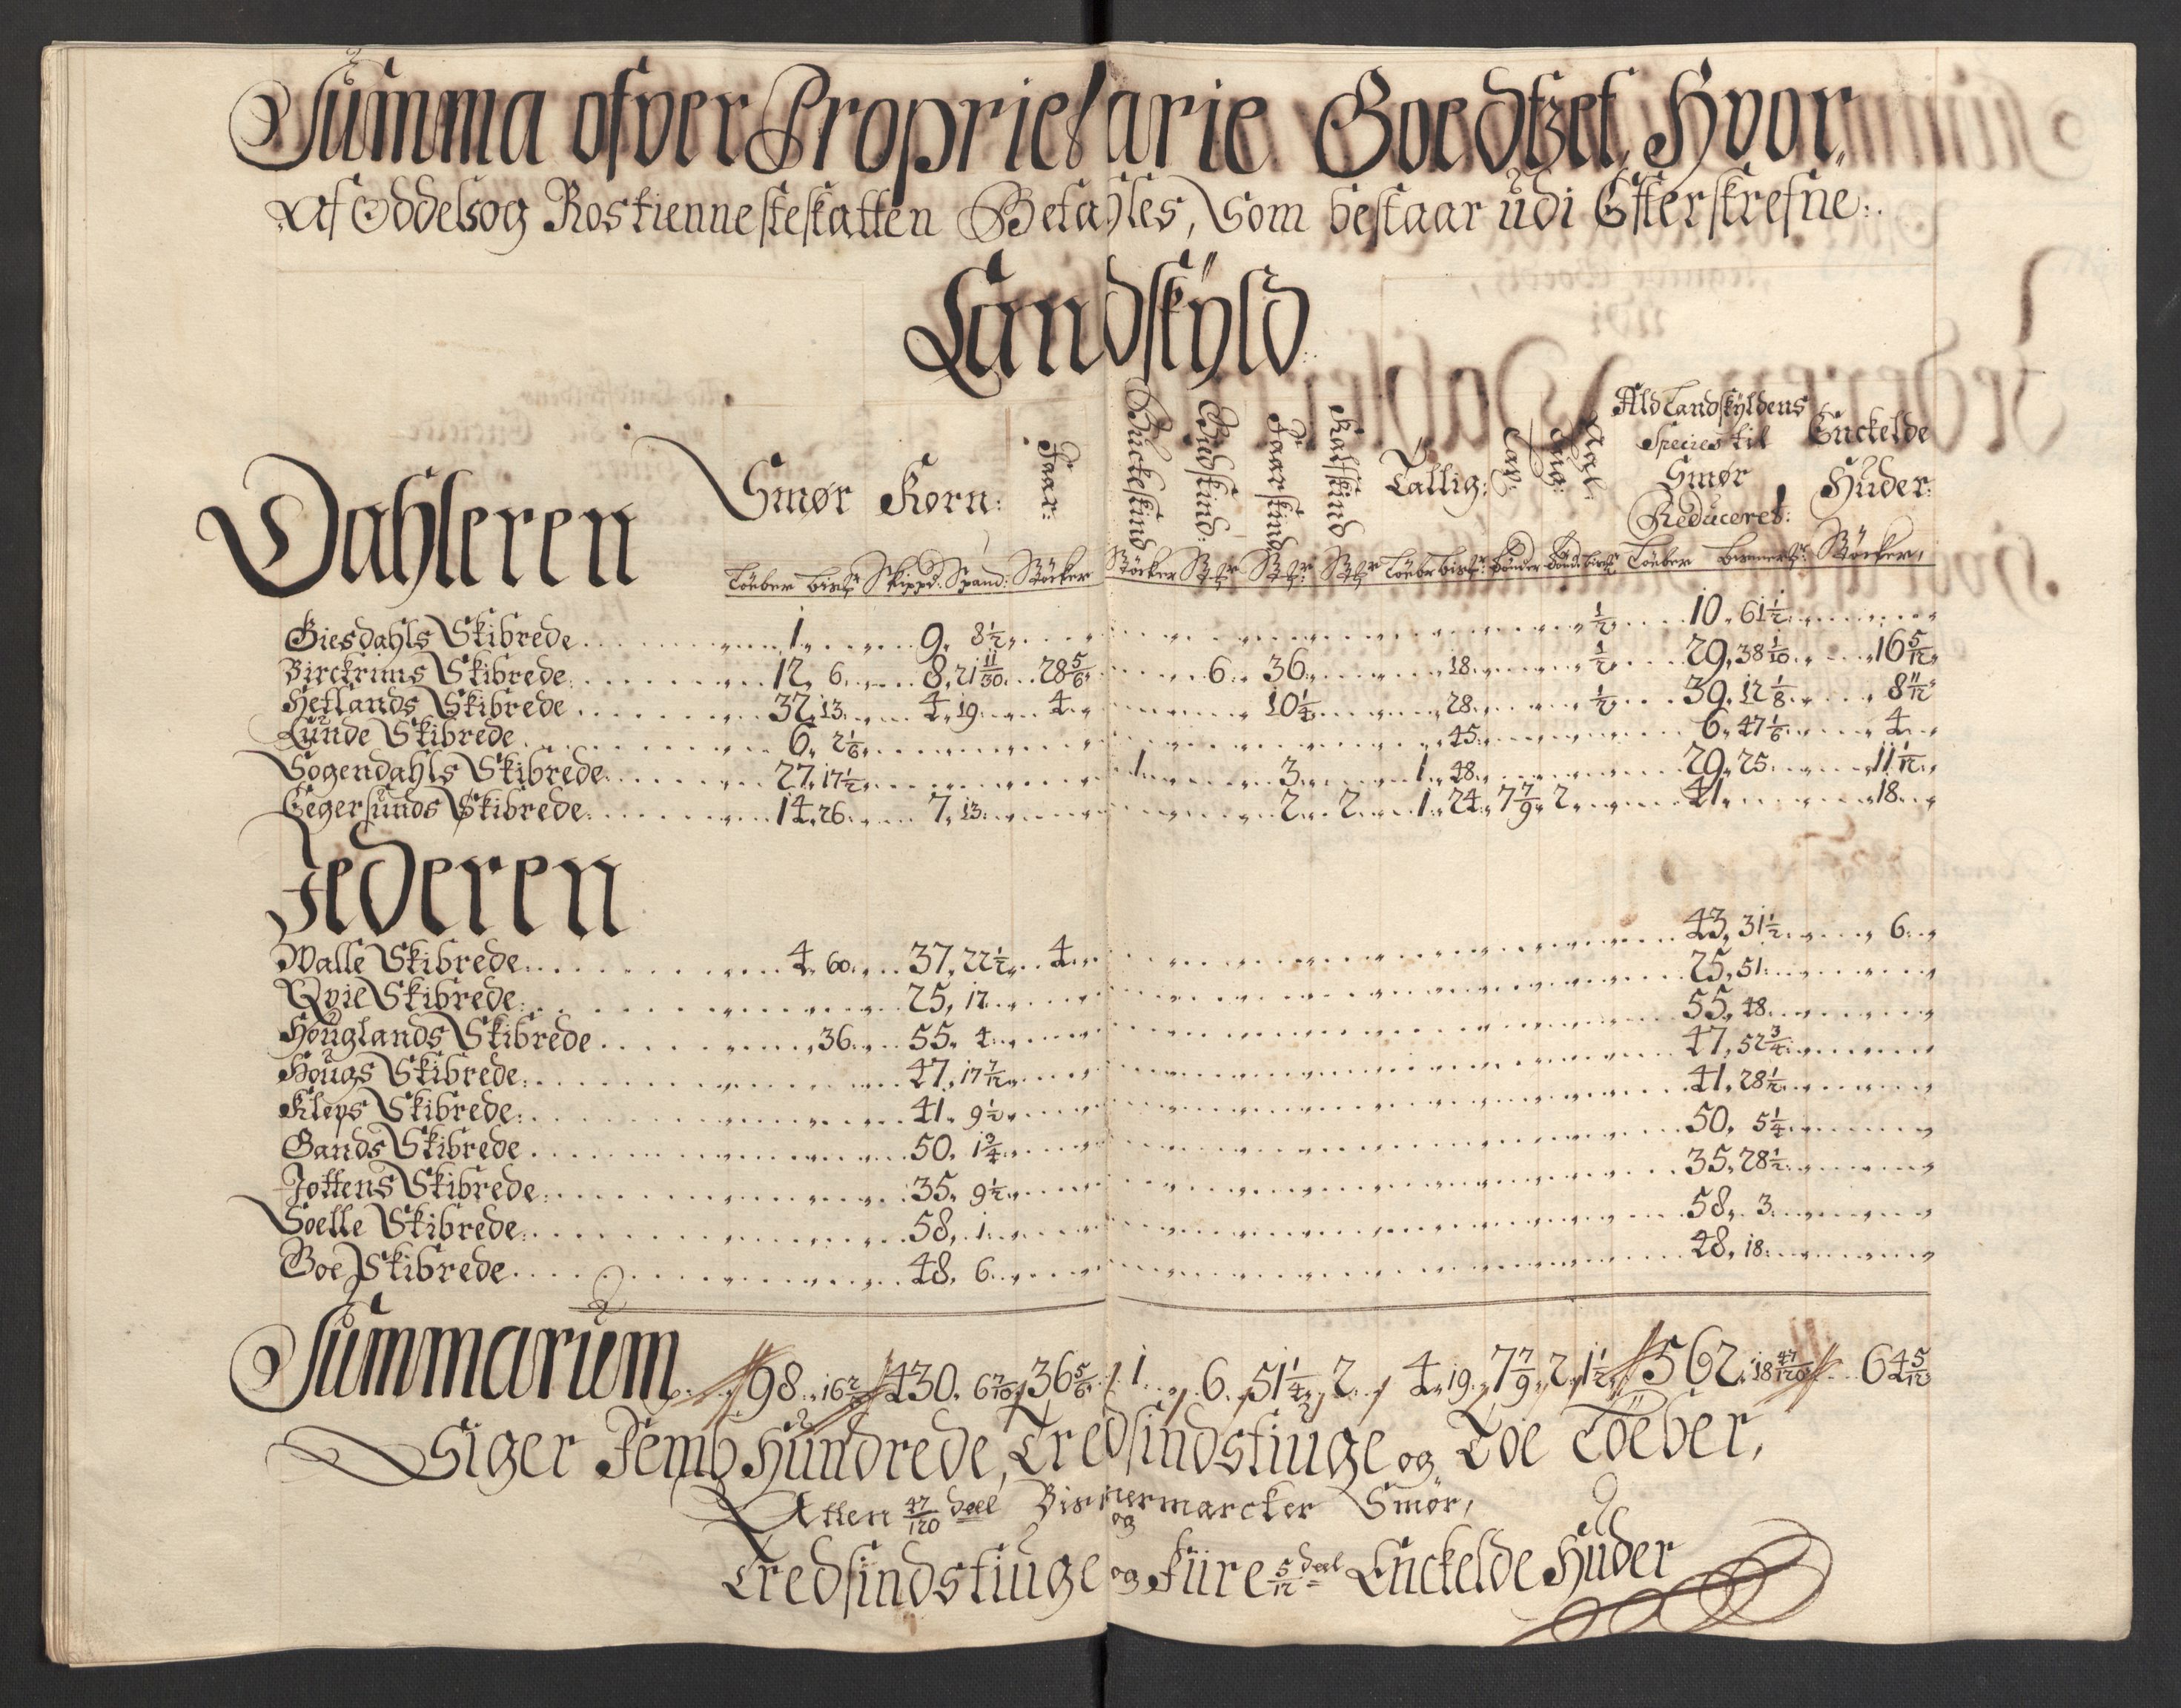 Summa ofver Proprietarie Goedtzet, Hvor„
Af Oddelsog Rostiennesteskatten Betahles, Som bestaar udi Efterskrefne:
Landskÿld:
Dahleren Smør Korn: Faar: Buckeskind Gedskind: Faarskind Kalfskind Tallig: Ald Landskÿldens Species til Smør Reduceret: Enckelde Huder:
Töeber Skippd: Spand: Stöcker Stöcker Stkr Stkr Stkr Töeber Töeber Bismertr: Stöcker,
Giesdahls Skibrede 1 9 8½ ½ 10 61½
Birckrims Skibrede 12 6 8 21 11/30 28 5/6 6 36 18 ½ 29 38 1/10 16 5/12
Hetlands Skibrede 32 13 4 19 4 10¼ 28 ½ 39 12 1/8 8 11/12
Lunde Skibrede 6 2 1/6 45 6 47 1/6 4
Sogendahls Skibrede 27 17½ 1 3 1 48 29 25 11 1/12
Eegersunds Skibrede 14 26 7 13 2 2 1 24 7 7/9 2 41 18
Jederen
Walle Skibrede 4 60 37 22½ 4 43 31½ 6
Qvie Skibrede 25 17 25 51
Houglands Skibrede 36 55 4 55 48
Hougs Skibrede 47 17 7/12 47 52¾
Kleps Skibrede 41 9½ 41 28½
Gands Skibrede 50 1¾ 50 5¼
Jottens Skibrede 35 9½ 35 28½
Soelle Skibrede 58 1 58 3
Goe Skibrede 48 6 48 18
Summarum 98 16 2/3 430 6 7/10 36 5/6 1 6 51¼ 2 4 19 7 7/9 2 1½ 562 18 47/120 64 5/12
Siger Femb Hundrede, Tredsindstiuge og Toe Töeber,
Atten 47/120 deel Bismermarcker Smør,
og
Tredsindstiuge og Fiire 5/12 deel Enckelde Huder